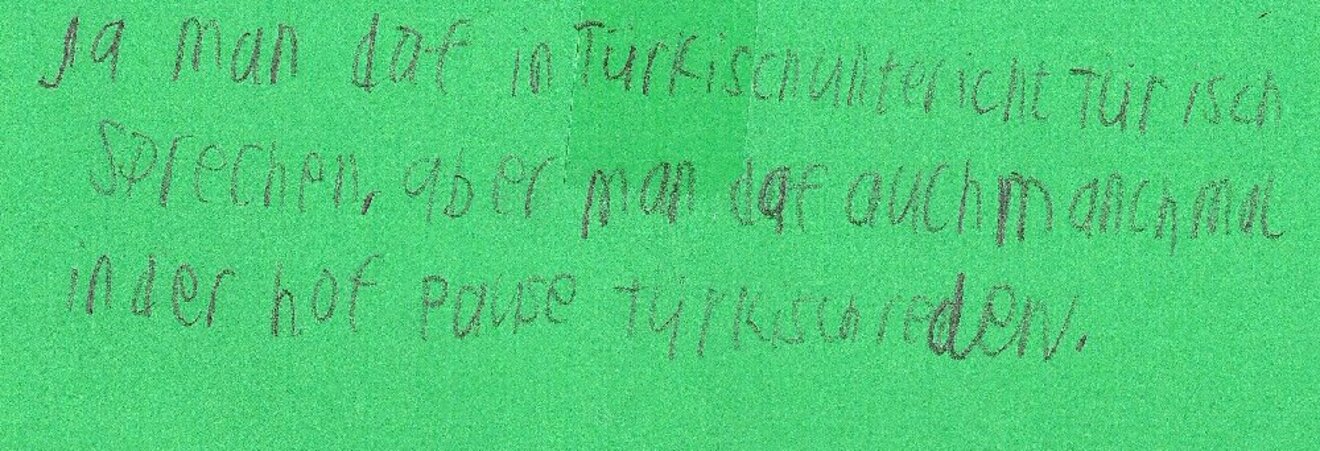 Ja man daf in Türkischuntericht Tür isch
Sprechen, aber man daf auch manchmal
in der hof pause türkisch reden.